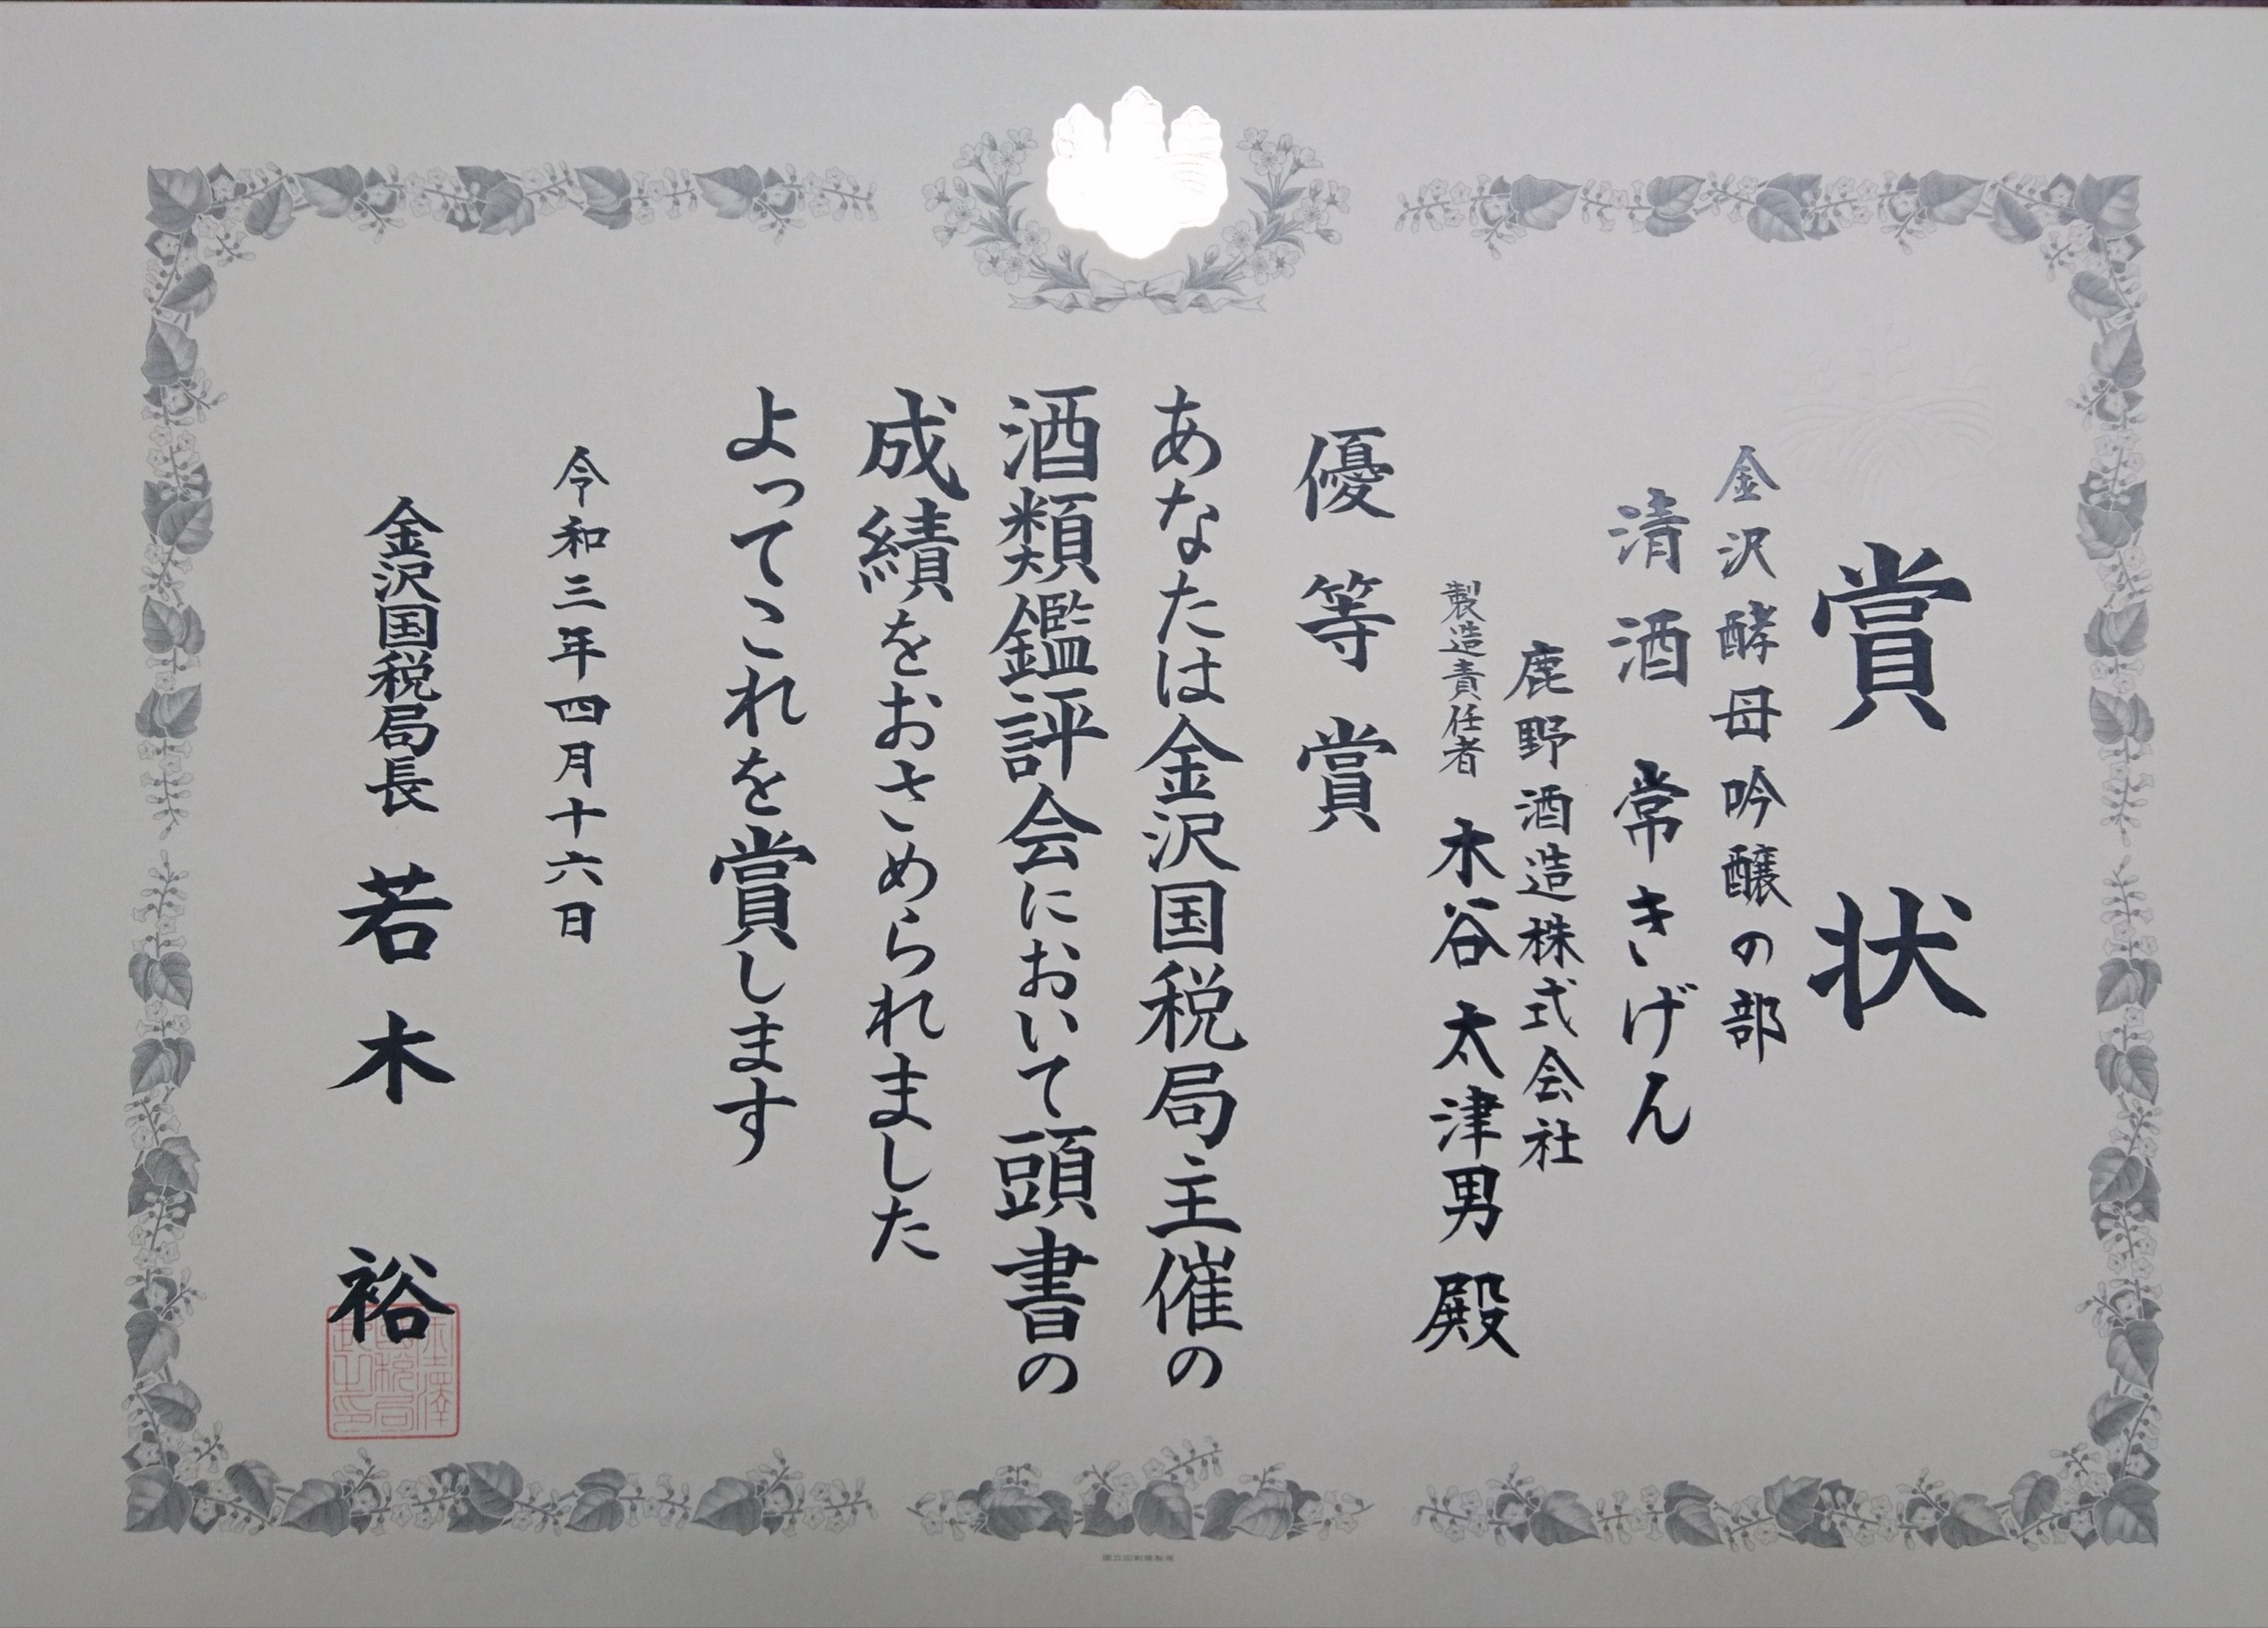 賞状
金沢酵母吟醸の部
清酒 常きげん
鹿野酒造株式会社
製造責任者 木谷太津男殿
優等賞
あなたは金沢国税局主催の
酒類鑑評会において頭書の
成績をおさめられました
よってこれを賞します
令和三年四月十六日
金沢国税局長 若木 裕